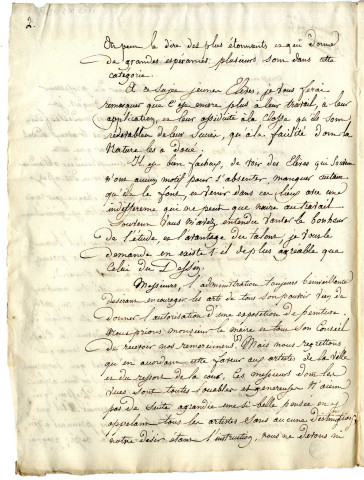 2.
On peut le dire des plus étonnants ce qui donne
de grandes esperances plusieurs sont dans cette
catégorie.
à ce sujet jeunes Elèves, je vous ferai
remarquer que c'est encore plus à leur travail, à leur
application, et leur assiduité à la classe qu'ils sont
redevables de leur succès, qu'à la facilité dont la
Nature les a doué.
Il est bien facheux, de voir des Elèves qui
n'ont aucun motif pour s'absenter, manquer autant
qu'ils le font, et venir dans ces lieux avec une
indifference qui ne peut que nuire au travail
Souvent vous m'avez entendu vanter le bonheur
de l'étude et l'avantage du talent, je vous le
demande en existe t-il de plus agréable que
Celui du Dessin.
Messieurs, l'administration toujours bienveillante
desirant encourager les arts de tout son pouvoir vien de
donner l'autorisation d'une exposition de peinture,
nous prions monsieur le maire et tout son Conseil
de recevoir nos remerciments. Mais nous regretions
qu'en accordant cette faveur aux artistes de la ville
et du ressort de la cour, Ces messieurs dont les
vues sont toutes louables et généreuses n'aient
pas de suite agrandie une si belle pensée en
appelant tous les artistes sans aucune Distinction,
notre désir étant l'instruction, nous ne devons ni